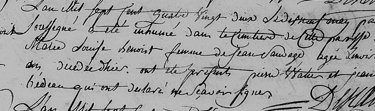 L'an mil sept cent quatre vingt deux le dix sept may par
soussigné a été inhumée dans le cimetiere de cette paroisse
Marie Louise Benoist femme de Jean Sauvage agée d'environ
ans decedée d'hier. ont été présents pierre et jean
Bedeau qui ont declaré ne scavoir signer